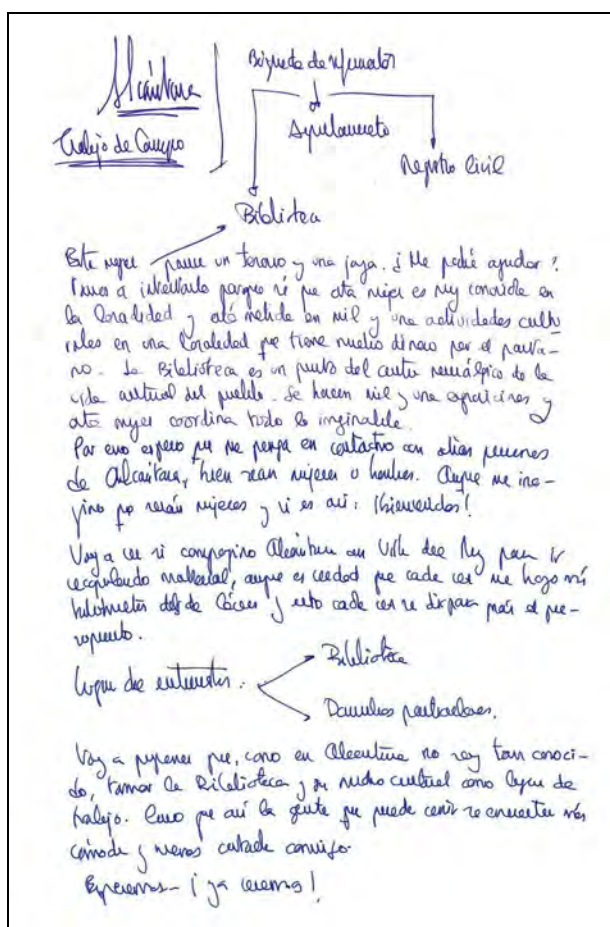 Alcántara
Trabajo de Campo
Búsqueda de informantes
Ayuntamiento
Registro Civil
Biblioteca
Esta mujer parece un tesoro y una joya. ¿Me podrá ayudar?
Vamos a intentarlo porque sé que esta mujer es muy conocida en
la localidad y está metida en mil y una actividades cultu
rales en una localidad que tiene mucho dinero por el panta-
no. La Biblioteca es un punto del centro neurálgico de la
vida cultural del pueblo. Se hacen mil y una exposiciones y
esta mujer coordina todo lo imaginable.
Por eso espero que me ponga en contacto con otras personas
de Alcántara, bien sean mujeres u hombres. Aunque me ima-
gino que serán mujeres y si es así: ¡bienvenidas!
Voy a ver si compagino Alcántara con Villa del Rey para ir
recopilando material, aunque es verdad que cada vez me hago más
kilómetros desde Cáceres y esto cada vez se dispara más el pre-
supuesto.
Lugar de entrevistas:
Biblioteca
Domicilios particulares.
Voy a proponer que, como en Alcántara no soy tan conoci-
do, tomar la Biblioteca y su nicho cultural como lugar de
trabajo. Creo que así la gente que puede venir se encuentre más
cómoda y menos cortada conmigo.
Esperemos - ¡ya veremos!